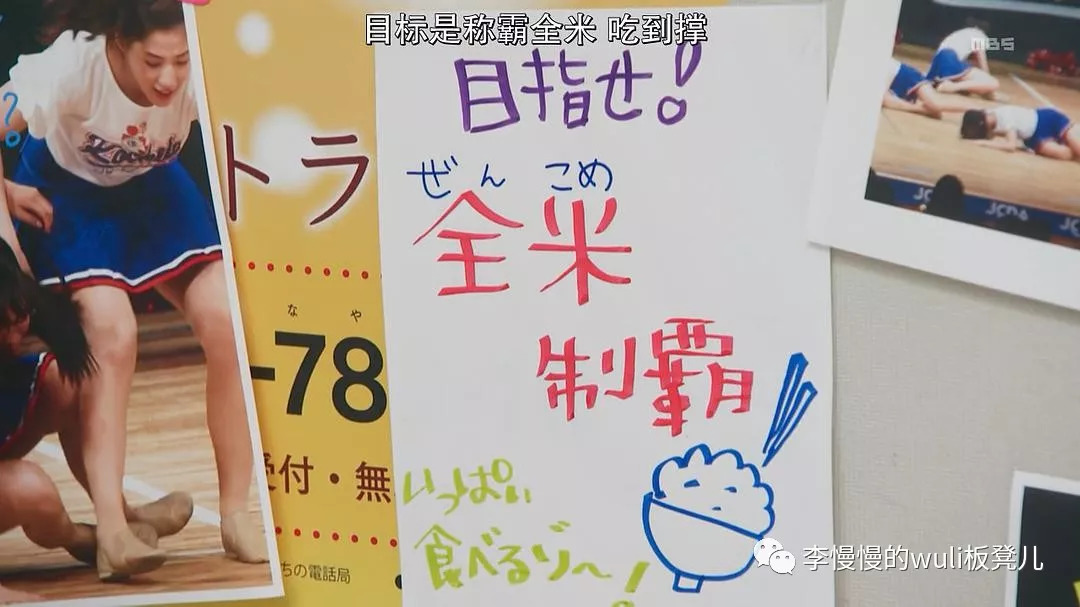 目标是称霸全米 吃到撑
MBS
目指せ!
ぜんこめ
全米
制覇
いっぱい
食べるゾ〜!
?
トラ
なや
-78
受付・無
ちの電話局
JCDA
李慢慢的wuli板凳儿